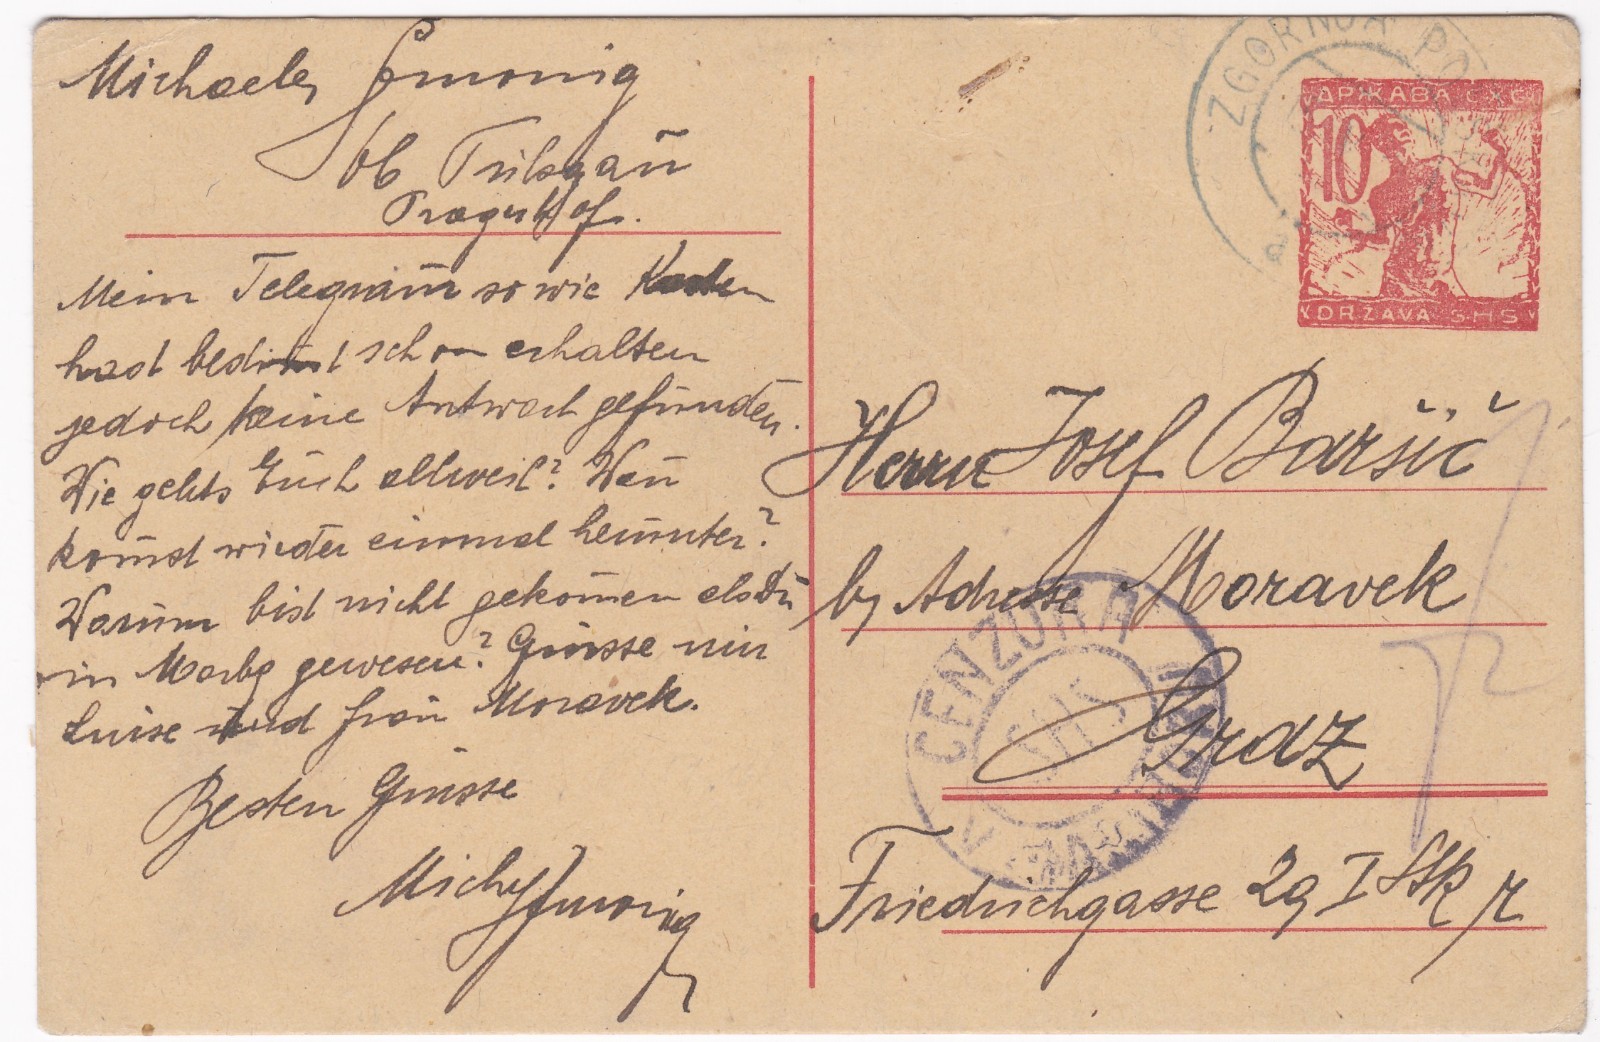 Michaeler
Ob
Mein Telegram̄ so wie Karten
hast bestim̄t schon erhalten
jedoch keine Antwort gefunden.
Wie gehts Euch allweil? Wan̄
kom̄st wieder einmal herunter?
Warum bist nicht gekom̄en als Du
in Marbg gewesen? Grüsse mir
Luise und Frau Moravek.
Besten Grüsse
Michl
ZGORNJA PO
ДРЖАВА СХС
10
DRŽAVA SHS
Herrn Josef Baršič
by Adresse Moravek
Graz
Friedrichgasse 29 I Stk r
CENZURA
SHS
V MARIBORU